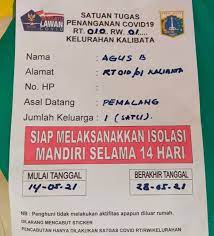 LAWAN
SATUAN TUGAS
PENANGANAN COVID19
RT. 010. RW. 01....
KELURAHAN KALIBATA
Nama : AGUS B
Alamat : RT 010/01 KALIBATA
No. HP :
Asal Datang : PEMALANG
Jumlah Keluarga : 1 (SATU).
SIAP MELAKSANAKKAN ISOLASI
MANDIRI SELAMA 14 HARI
MULAI TANGGAL
BERAKHIR TANGGAL
14-05-21
28-05-21
NB : Penghuni tidak melakukan aktifitas apapun diluar rumah.
DILARANG MENCABUT STICKER
PENCABUTAN HANYA DILAKUKAN SATGAS COVID RT/RW/KELURAHAN